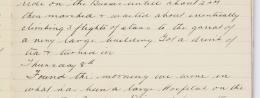 ride on the Buses until about 2 am
then marched & waited about eventually
climbing 3 flights of stairs to the garret of
a very large building Got a drink of
tea & turned in
Thursday 8th
Found the morning we were in
what had been a large Hospital on the